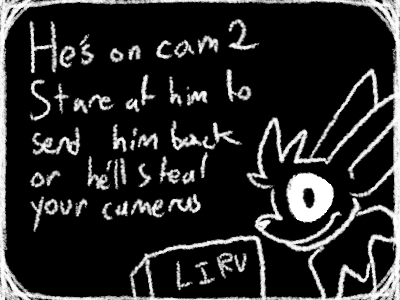 He's on cam 2
Stare at him to
send him back
or he'll steal
your cameras
LIRU